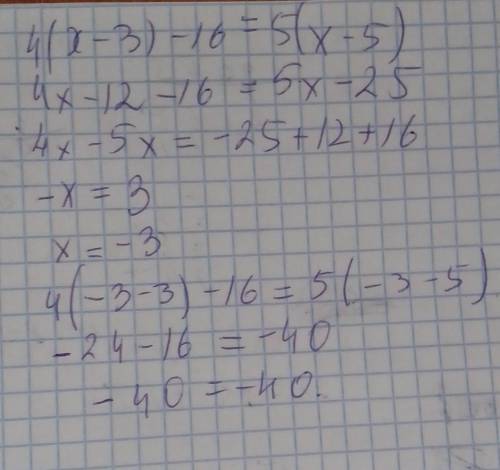 4(x-3)-16=5(x-5)
4x-12-16=5x-25
4x-5x=-25+12+16
-x=3
x=-3
4(-3-3)-16=5(-3-5)
-24-16=-40
-40=-40.